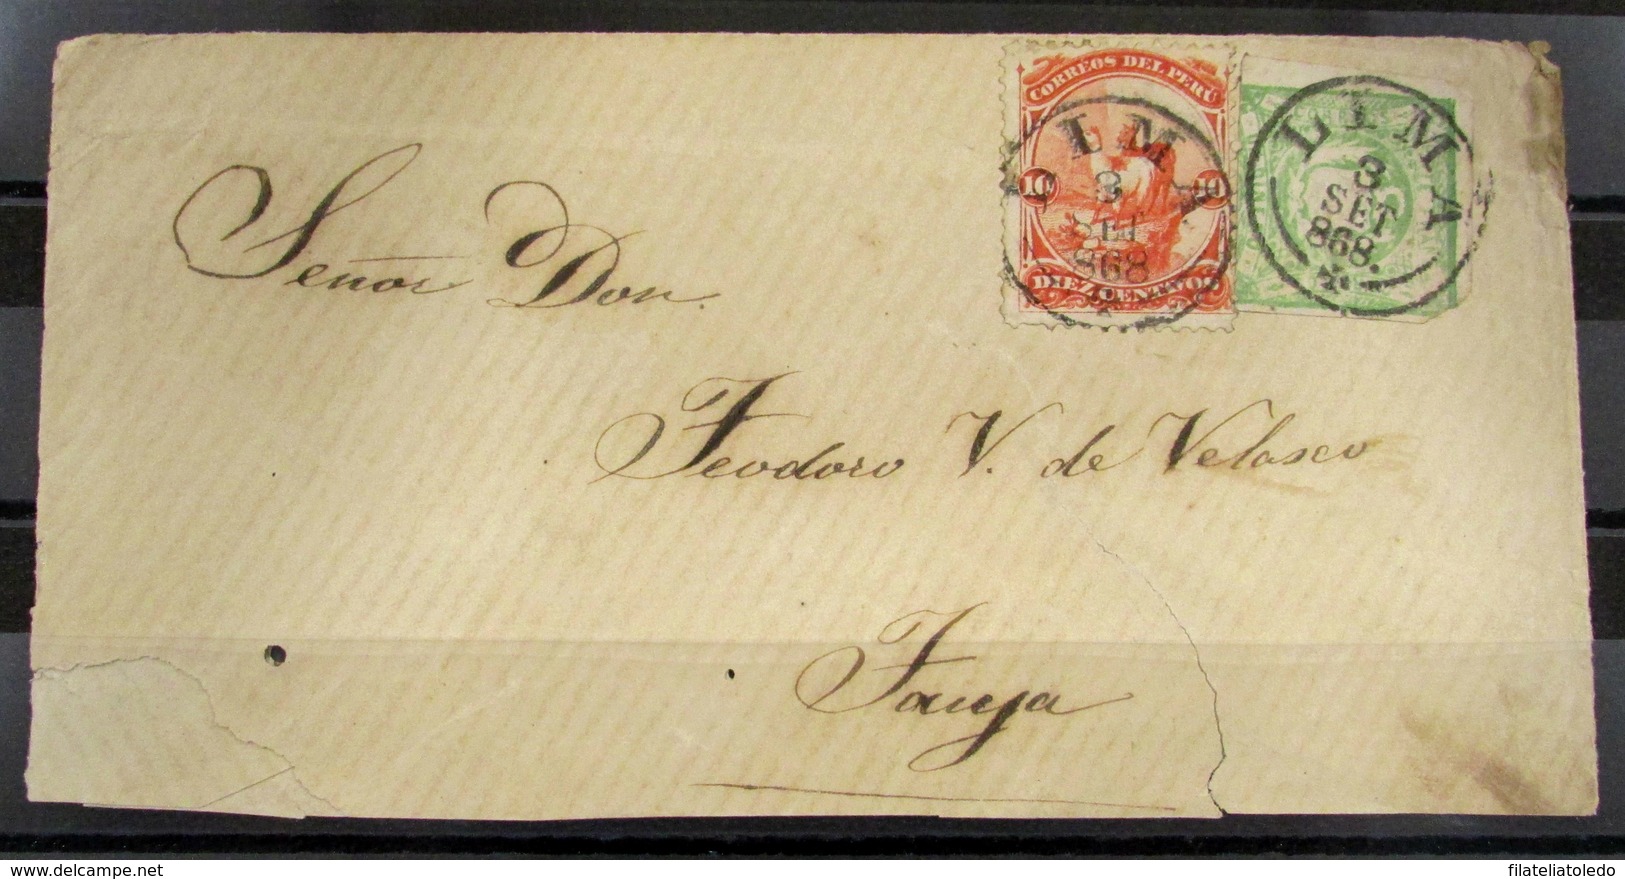 CORREOS DEL PERÚ
10 10
DIEZ CENTAVOS
LIMA
3
SET
868
LIMA
3
SET
868.
Señor Don.
Teodoro V. de Velasco
Jauja
filateliatoledo